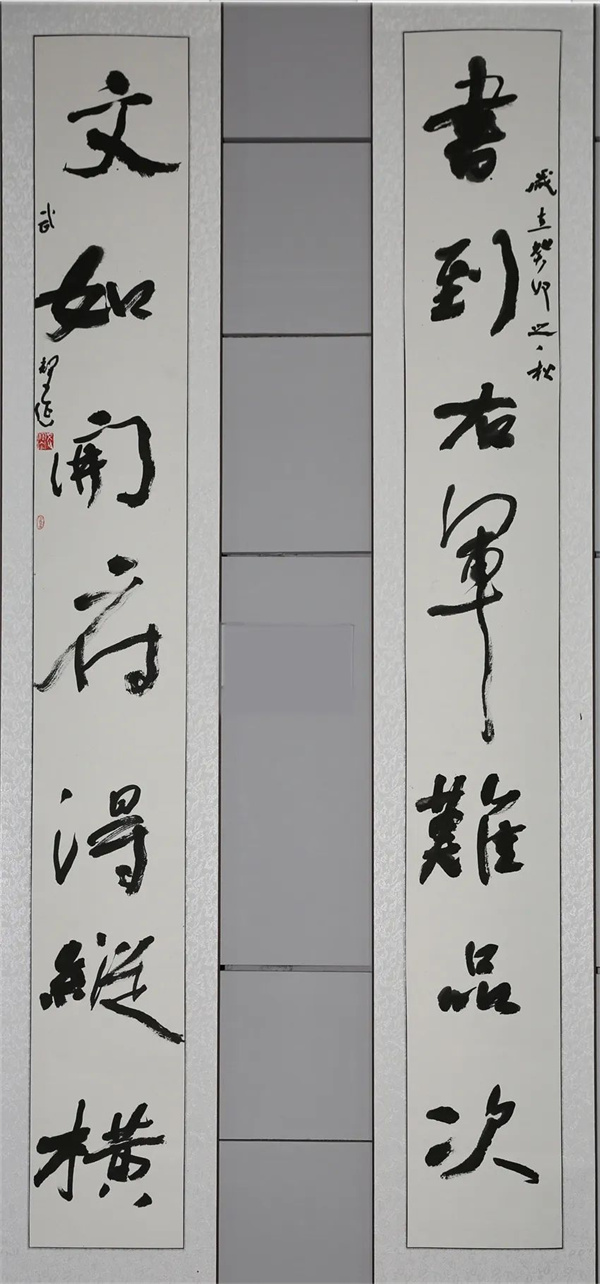 書到右軍難品次
歲在癸卯之秋
文如開府得縱橫
武